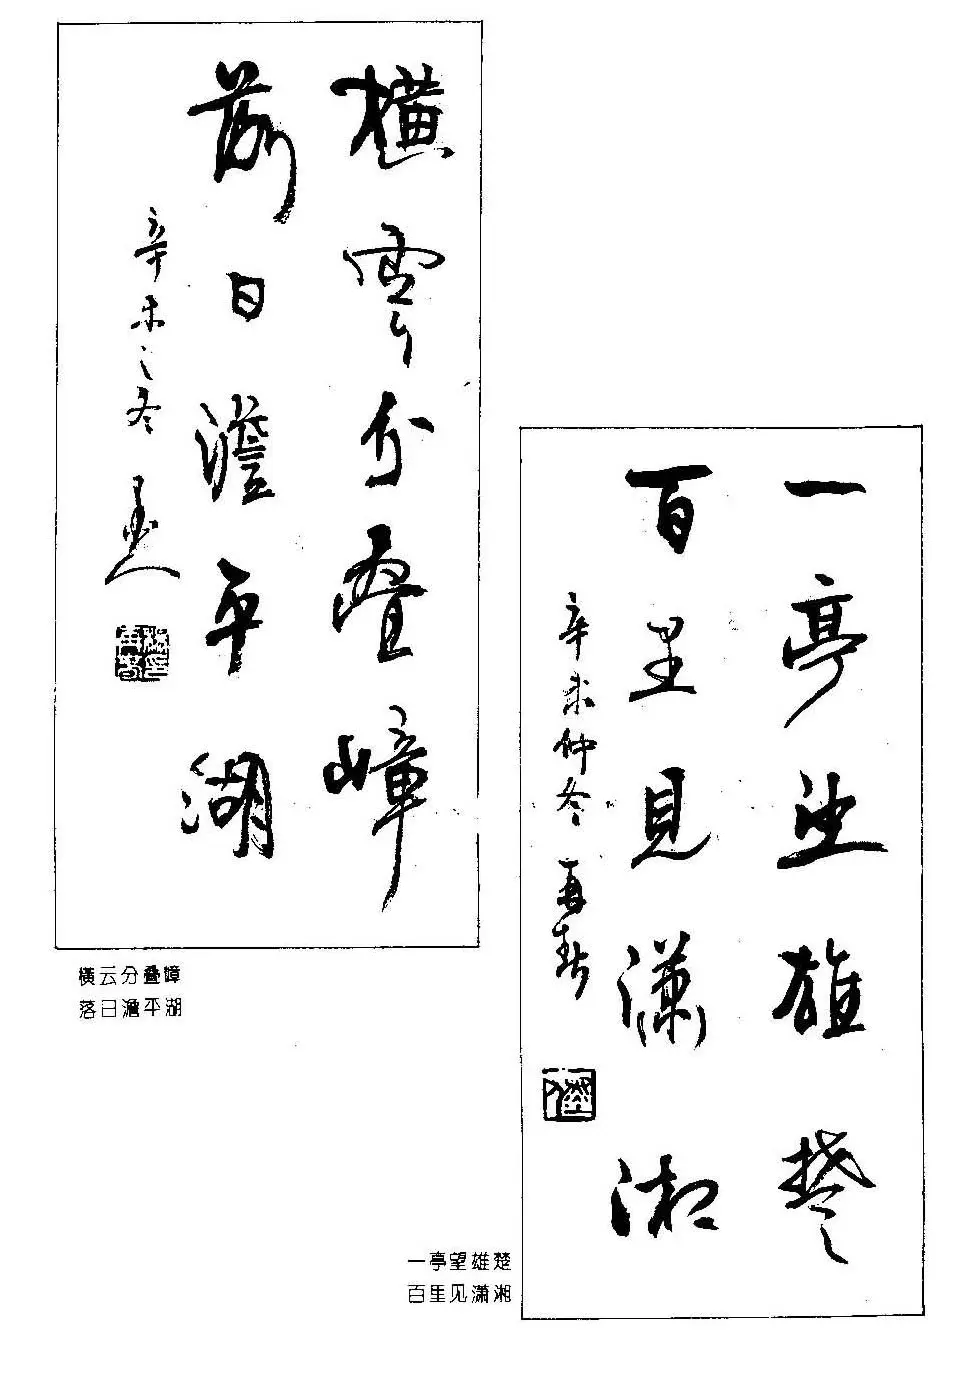 橫雲分疊嶂
落日澹平湖
辛未之冬
横云分叠嶂
落日澹平湖
一亭望雄楚
百里見瀟湘
辛未仲冬
一亭望雄楚
百里见潇湘